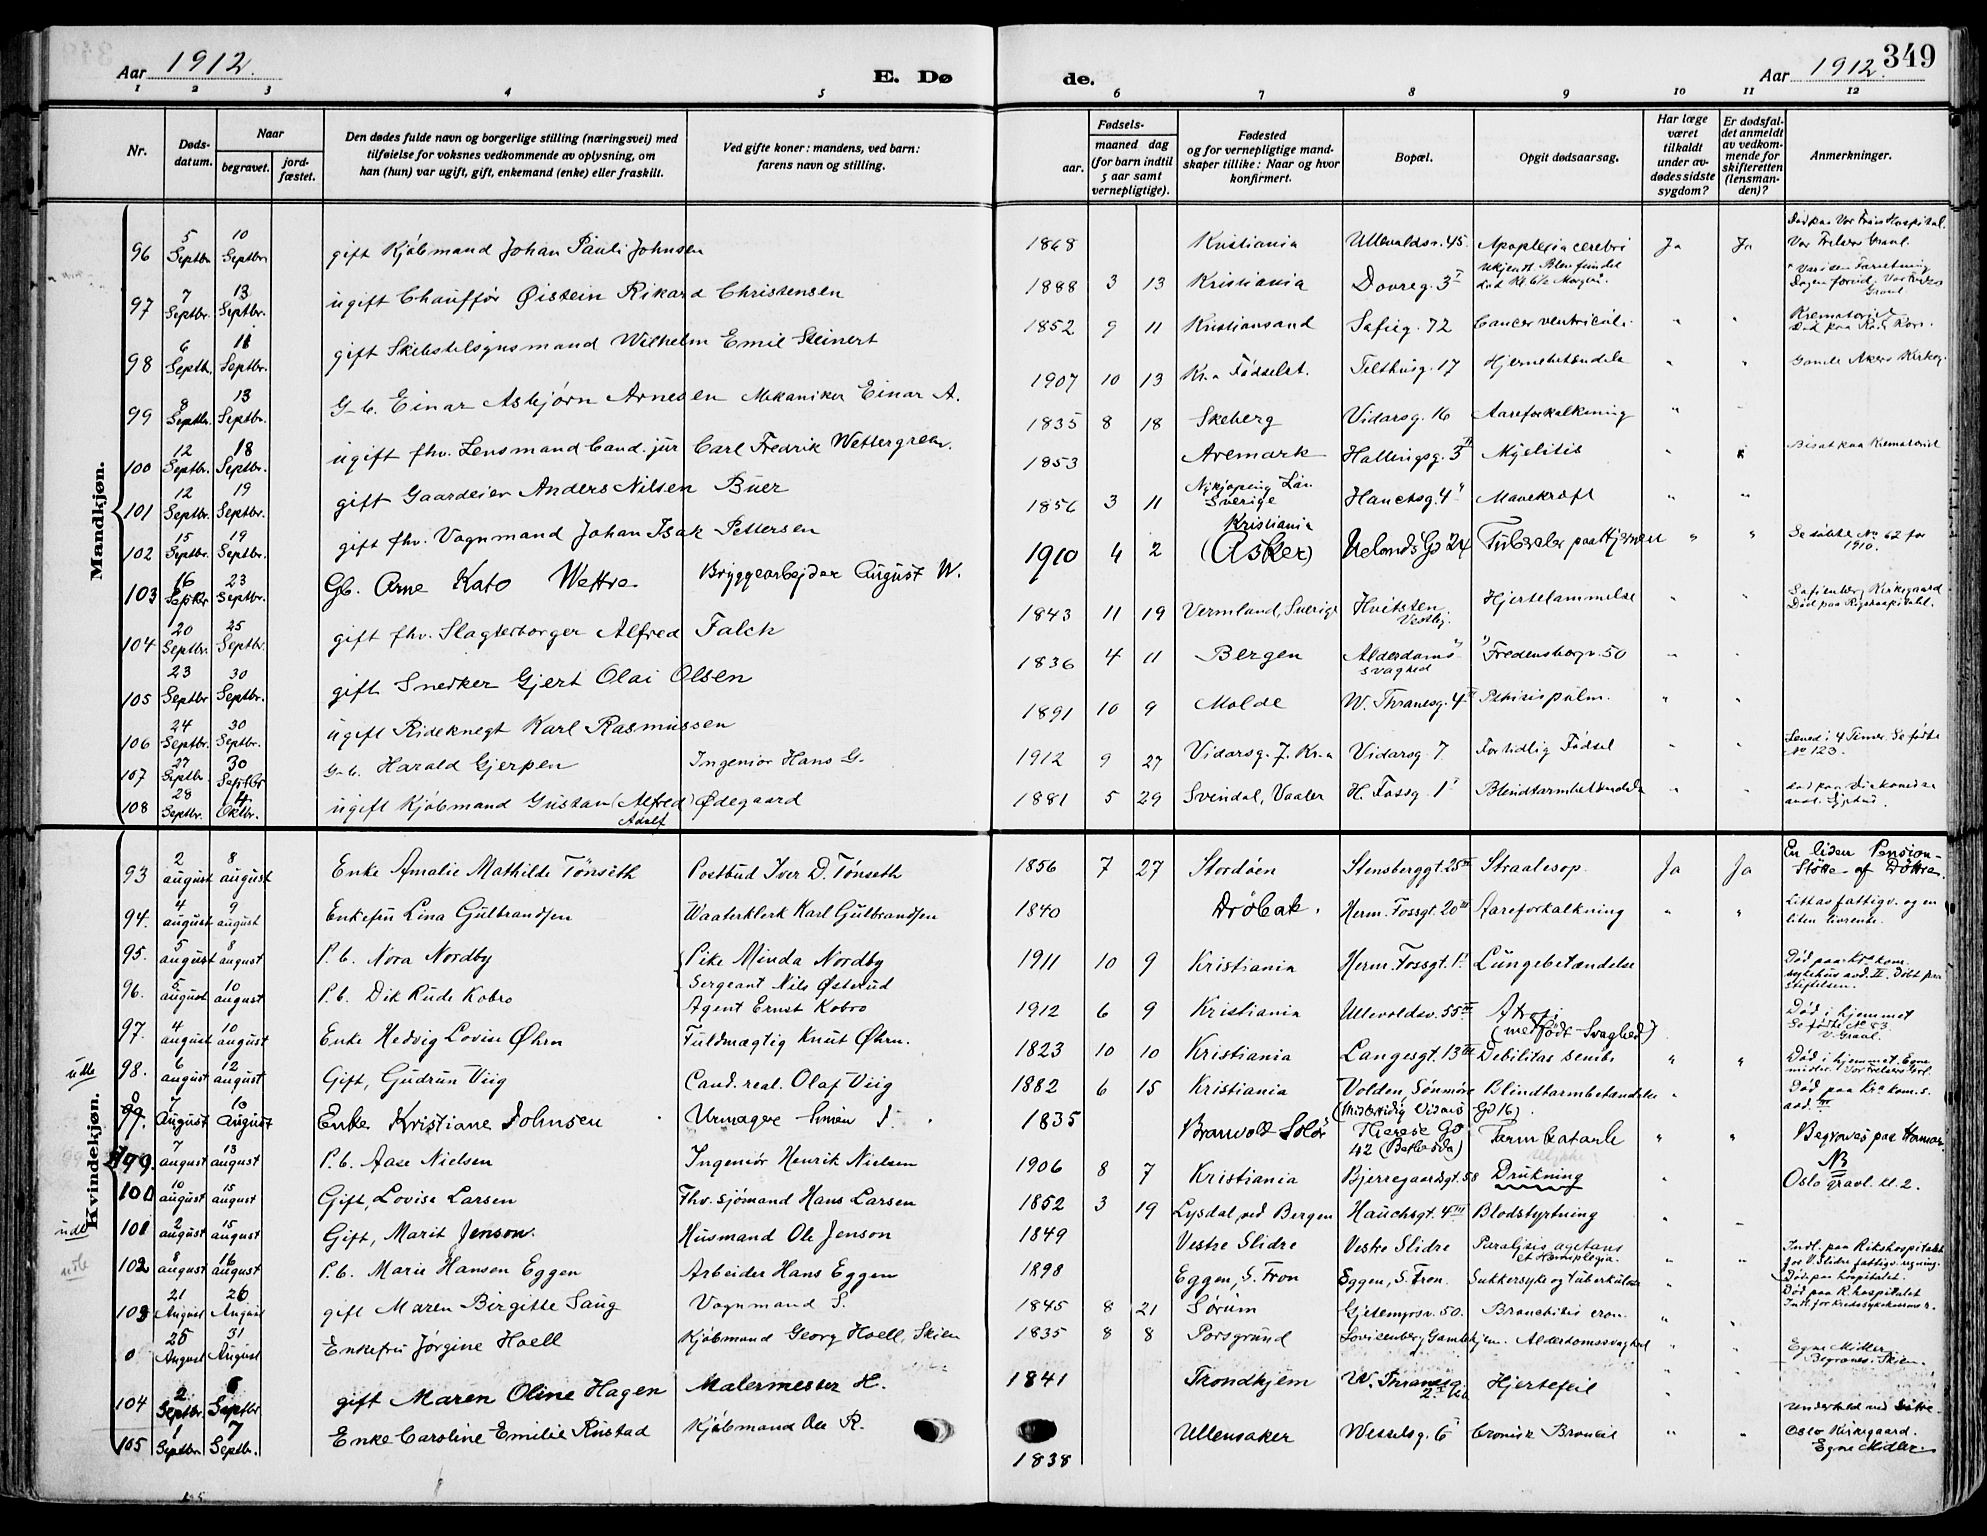 Aar 1912.
E. Dø
de.
Aar 1912.
349
1 2 3 4 5 6 7 8 9 10 11 12
Nr.
Døds-
datum.
Naar
begravet.
jord-
fæstet.
Den dødes fulde navn og borgerlige stilling (næringsvei) med
tilføielse for voksnes vedkommende av oplysning, om
han (hun) var ugift, gift, enkemand (enke) eller fraskilt.
Ved gifte koner: mandens, ved barn:
farens navn og stilling.
Fødsels-
aar.
maaned dag
(for barn indtil
5 aar samt
vernepligtige).
Fødested
og for vernepligtige mand-
skaper tillike: Naar og hvor
konfirmert.
Bopæl.
Opgit dødsaarsag.
Har læge
været
tilkaldt
under av-
dødes sidste
sygdom?
Er dødsfal-
det anmeldt
av vedkom-
mende for
skifteretten
(lensman-
den)?
Anmerkninger.
Mandkjøn.
96 5 Septbr 10 Septbr gift Kjøbmand Johan Pauli Johnsen 1868 Kristiania Ullevaldsv. 45. Apoplexia cerebri Ja Ja Død paa Vor Frues Hospital. Vor Frelsers Gravl.
97 7 Septbr. 13 Septbr. ugift Chauffør Øistein Rikard Christensen 1888 3 13 Kristiania Dovreg. 3 I Ukjendt. Blev fundet død Kl. 6½ Morgen.
98 6 Septb. 11 Septbr. gift Skibstilsynsmand Wilhelm Emil Steinert 1852 9 11 Kristiansand Sofieg. 72 Cancer ventriculi. " " Krematoriet Død paa Røde Kors.
99 8 Septbr. 13 Septbr. G-b. Einar Asbjørn Arnesen Mekaniker Einar A. 1907 10 13 Kr.a Fødselst. Telthusg. 17 Hjernebetændelse " " Gamle Akers Kirkeg.
100 12 Septbr. 18 Septbr. ugift fhv. Lensmand Cand. jur Carl Fredrik Wettergreen. 1835 8 18 Skeberg Vidarsg. 16 Aareforkalkning " "
101 12 Septbr. 19 Septbr. gift Gaardeier Anders Nilsen Buer 1853 Aremark Hallingsg. 3 II Myelitis " " Bisat paa Krematoriet
102 15 Septbr. 19 Septbr. gift fhv. Vognmand Johan Isak Pettersen 1856 3 11 Nykjøping Län Sverige Hauchsg. 4 Mavekræft " "
103 16 Septbr 23 Septbr. Gb. Arne Kato Wettre Bryggearbejder August W. 1910 4 2 Kristiania (Asker) Uelands Gd 24 Tuberkler paa Hjernen " " Se døbte No 62 for 1910.
104 20 Septbr. 25 Septbr. gift fhv. Slagterborger Alfred Falck 1843 11 19 Vermland, Sverige Hvitsten. Vestby. Hjertelammelse " " Sofienberg Kirkegaard Død paa Rigshospitalet.
105 23 Septbr. 30 Septbr. gift Snedker Gjert Olai Olsen 1836 4 11 Bergen Alderdoms- svaghed Fredensborgv. 50 " "
106 24 Septbr. 30 Septbr. ugift Rideknegt Karl Rasmussen 1891 10 9 Molde W. Thranesg. 4 II Pthisis pulm. " "
107 27 Septbr. 30 Septbr G-b. Harald Gjerpen Ingeniør Hans G. 1912 9 27 Vidarsg. 7. Kr.a Vidarsg. 7 For tidlig Født " " Leved i 4 Timer. Se fødte No 123.
108 28 Septbr. 4 Oktbr. ugift Kjøbmand Gustav (Alfred) Ødegaard Adolf 1881 5 29 Svendal, Vaaler H. Fossg. 1 Blindtarmbetændelse " "
Kvindekjøn.
93 2 august 8 august Enke Amalie Mathilde Tönseth Postbud Iver D. Tönseth 1856 7 27 Stordøen Stensberggt. 25 III Straalesop. Ja Ja En liden Pension- Støtte af Døttre.
94. 4 august 9 august Enkefru Lina Gulbrandsen Waaterklerk Karl Gulbrandsen 1840 Drøbak. Herm. Fossgt. 20 III Aareforkalkning " "
95. 5 august 8 august P. b. Nora Nordby Pike Minda Nordby Sergeant Nils Østerud 1911 10 9 Kristiania Herm. Fossgt. 1 Lungebetændelse
96. 5 august 10 august P. b. Dik Rude Kobro Agent Ernst Kobro 1912 6 9 Kristiania Ullevoldsv. 55 II (medfödt Svaghed) Død i hjemmet Se fødte No 83. V. Gravl.
97. 4 august 10 august Enke Hedvig Lovise Øhrn Fuldmægtig Knut Øhrn. 1823 10 10 Kristiania Langesgt. 13 III Debilitas senilis " " Død i hjemmet
udle 98. 6 august 12 august Gift, Gudrun Viig Cand. real. Olaf Viig 1882 6 15 Kristiania Volden, Sønmøre Blindtarmbetændelse " Død paa Kr.a kom. s. avd. III
99. 7 August 10 August Enke Kristiane Johnsen Urmager Simen J. 1835 Brandvold Solør (Midlertidig Vidars Gd 16). Therese Gd 42 (Bethesda) Tarmkatarh " " Begraves paa Hamar.
99. 7 august 13 august P. b. Aase Nielsen Ingeniør Henrik Nielsen 1906 8 7 Kristiania Bjerregaardsgt. 58 Drukning NB Oslo gravl. kl 2.
100 10 august 15 august Gift, Lovise Larsen Fhv. sjömand Hans Larsen 1852 3 19 Lysdal, ved Bergen Hauchsgt. 4 III Blodstyrtning
udle 101 2 august 15 august Gift, Marit Jenson. Husmand Ole Jenson 1849 Vestre Slidre Vestre Slidre Paralysis agitans et Hemiplegia " "
udle 102 8 august 16 august P. b. Marie Hansen Eggen Arbeider Hans Eggen 1898 Eggen, S. Fron Eggen, S. Fron. Sukkersyke og tuberkulose
103 21 August 26 August gift Maren Birgitte Saug Vognmand S. 1845 8 21 Sørum Gjetemyrsv. 50. Bronchitis cron.
0 25 August 31 August Enkefru Jørgine Hoell Kjøbmand Georg Hoell, Skien 1835 8 8 Porsgrund Lovisenberg Gamlehjem. Alderdomssvaghed Egne Midler Begraves i Skien.
104 2 Septbr. 6 Septbr gift Maren Oline Hagen Malermester H. 1841 Trondhjem W. Thranesg. Hjertefeil
105 1 Septbr. 7 Septbr. Enke Caroline Emilie Rustad Kjøbmand Ole R. 1838 Ullensaker Wesselsg. 6 Cronisk Bronkit " " Oslo Kirkegaard. Egne Midler